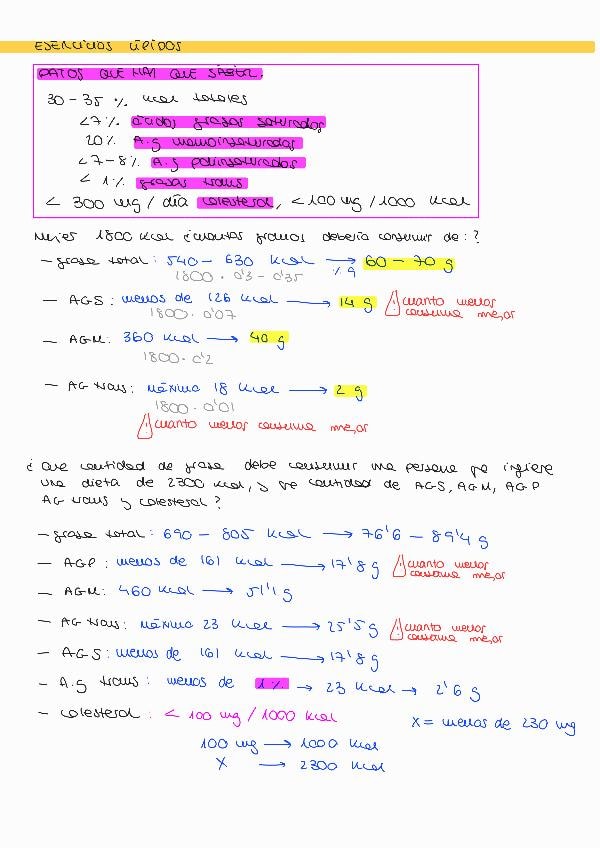 EJERCICIOS LÍPIDOS
DATOS QUE HAY QUE SABER.
30-35 % kcal totales
<7% ácidos grasos saturados
20% A.g monoinsaturados
<7-8% A.g poliinsaturados
< 1% grasas trans
< 300 mg / día colesterol, <100 mg /1000 kcal
Mujer 1800 kcal ¿cuantos gramos debería consumir de:?
- grasa total: 540 - 630 kcal → 60 - 70 g
% 9
1800 · 0'3 - 0'35
- AGS: menos de 126 kcal → 14 g ⚠ cuanto menor consuma mejor
1800 · 0'07
- AGM: 360 kcal → 40 g
1800 · 0'2
- AG trans: máximo 18 kcal → 2 g
1800 · 0'01
⚠ cuanto menor consuma mejor
¿Que cantidad de grasa debe consumir una persona que ingiere
una dieta de 2300 kcal, y que cantidad de AGS, AGM, AGP
AG trans y colesterol?
- grasa total: 690 - 805 kcal → 76'6 - 89'4 g
- AGP: menos de 161 kcal → 17'8 g ⚠ cuanto menor consuma mejor
- AGM: 460 kcal → 51'1 g
- AG trans: máximo 23 kcal → 25'5 g ⚠ cuanto menor consuma mejor
- AGS: menos de 161 kcal → 17'8 g
- A.g trans: menos de 1% → 23 kcal → 2'6 g
- colesterol: < 100 mg / 1000 kcal X = menos de 230 mg
100 mg → 1000 kcal
X → 2300 kcal